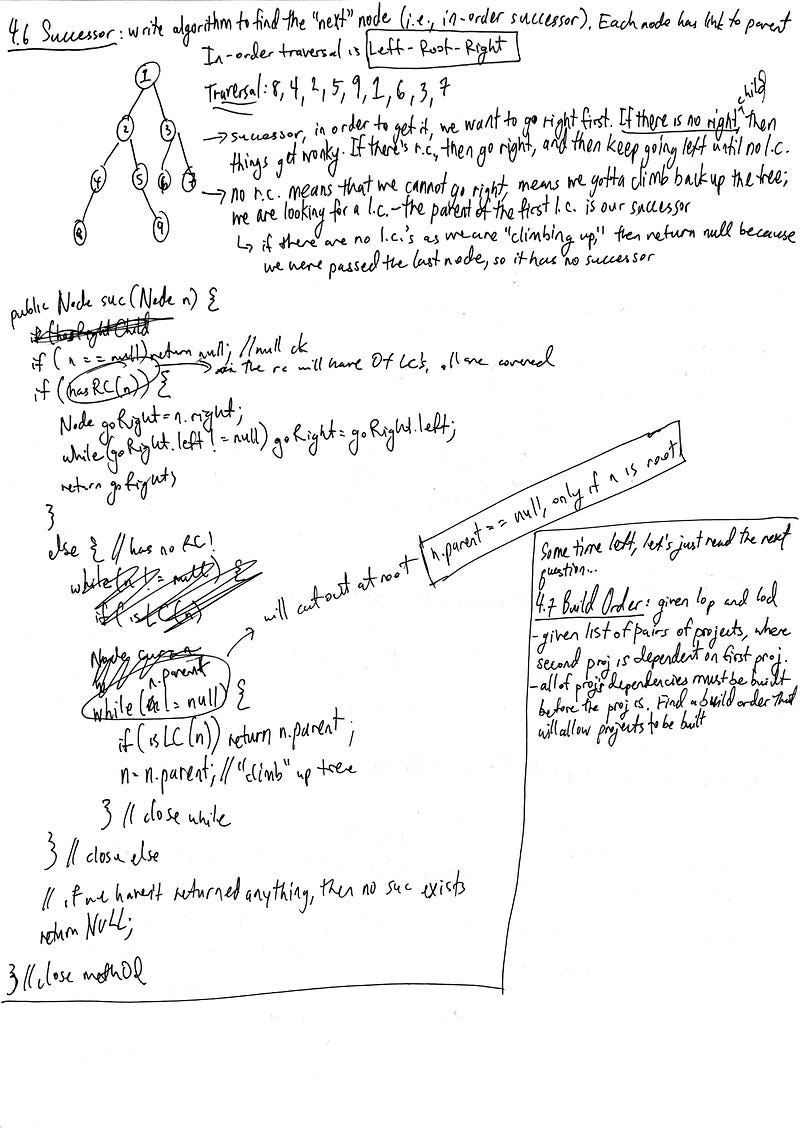 4.6 Successor: write algorithm to find the "next" node (i.e., in-order successor). Each node has link to parent
In-order traversal is Left-Root-Right
Traversal: 8, 4, 2, 5, 9, 1, 6, 3, 7
1
2 3
4 5 6 7
8 9
→ successor, in order to get it, we want to go right first. If there is no right child, then
things get wonky. If there's r.c., then go right, and then keep going left until no l.c.
→ no r.c. means that we cannot go right, means we gotta climb back up the tree;
we are looking for a l.c. – the parent of the first l.c. is our successor
↳ if there are no l.c.'s as we are "climbing up," then return null because
we were passed the last node, so it has no successor
public Node suc(Node n) {
if (hasRightChild
if (n == null) return null; //null ck
if (hasRC(n)) {
→ the rc will have 0+ LC's, all are covered
Node goRight = n.right;
while (goRight.left != null) goRight = goRight.left;
return goRight;
}
else { // has no RC!
while (n != null) {
if (isLC(n)
Node
n.parent
while ( != null) {
→ will cut out at root
n.parent == null, only if n is root
if (isLC(n)) return n.parent;
n = n.parent; // "climb" up tree
} // close while
} // close else
// if we haven't returned anything, then no suc exists
return NULL;
} // close methOd
Some time left, let's just read the next
question...
4.7 Build Order: given lop and lod
- given list of pairs of projects, where
second proj is dependent on first proj.
- all of proj's dependencies must be built
before the proj is. Find a build order that
will allow projects to be built